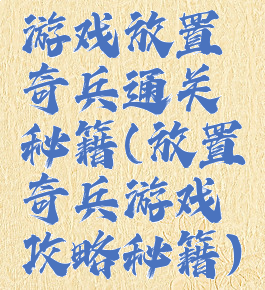 游戏放置
奇兵通关
秘籍(放置
奇兵游戏
攻略秘籍)